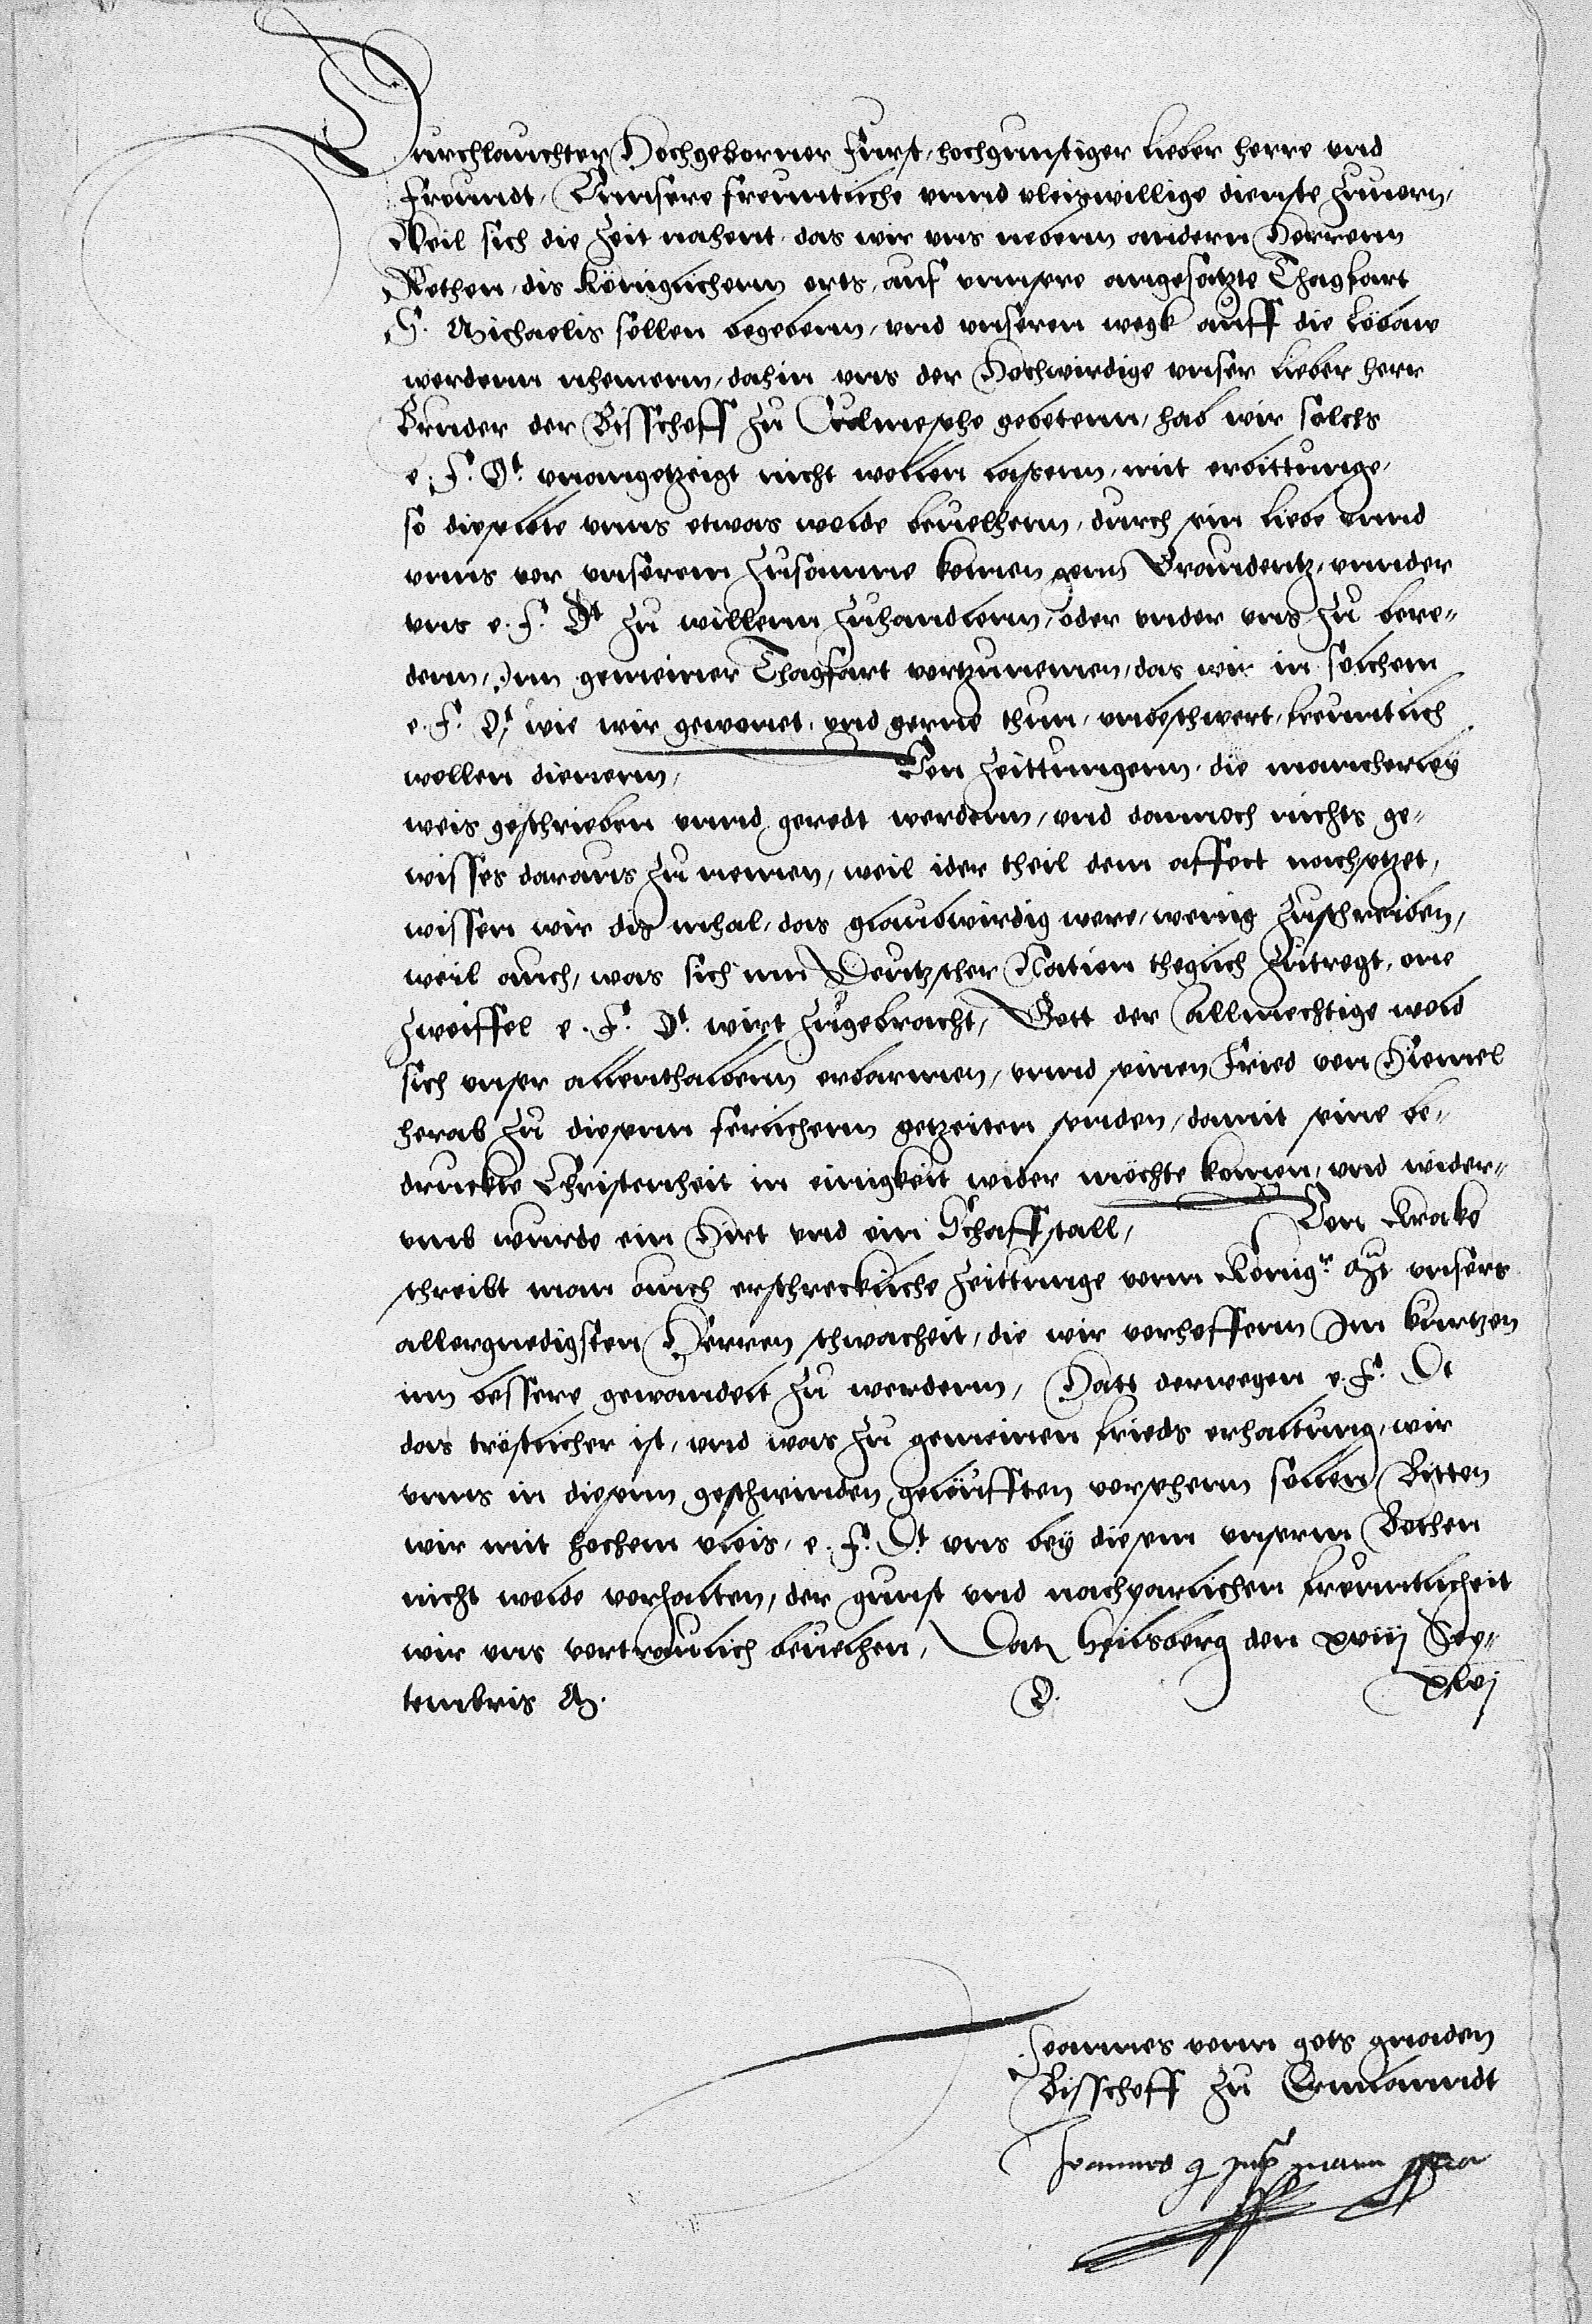 Durchlauchter Hochgeborner Furst, hochgunstiger lieber herre und
freundt, Vnnsere freuntliche vnnd vleiswillige dienste zuuorn,
Weil sich die Zeit nahent, das wir vns nebenn andern Herrenn
Rethen, dis königlichenn orts, auf vnnsere angesatzte Thagfart
S. Michaelis sollen begebenn, vnd vnseren wegk auff die Löbaw
werdenn nhemenn, dahin vns der Hochwirdige vnser lieber herr
Bruder der Bisschoff zu Culmeszhe gebetenn, hab wir solchs
e. f. Dt. vnangetzeigt nicht wollen laszenn, mit erbittunge,
so dieselbte vnns etwas wolde beuelhenn, durch sein liebe vnnd
vnns vor vnserem zusamne komen genn Graudentz, vnnder
vns e. f. Dt zu willenn zuhandlenn, oder vnder vns zu bere-
denn, Inn gemeiner Thagfart vortzunemen, das wir in solchem
e. f. Dt, wie wir gewonet, vnd gerne thun, vnbeschwert, freuntlich
wollen dienenn, Von Zeittungenn, die mancherley
weis geschrieben vnnd geredt werdenn, vnd dannoch nichts ge-
wisses daraus zu nemen, weil ider theil dem affect nachsetzet,
wissen wir dis mhal, das glaubwirdig were, wenig zuschreiben,
weil auch, was sich inn Deutzscher Nation theglich zutregt, one
zweiffel e. f. Dt. wirt zugebracht, Gott der Allmechtige wold
sich vnser allenthalbenn erbarmen, vnnd seinen Fried von Himel
herab zu diesenn ferlichenn getzeiten senden, damit seine be-
druckte Christenheit in einigkeit wider möchte komen, vnd wider-
vmb wurde ein Hirt vnd ein Schaffstall, Von Krake
schreibt man auch erschreckliche Zeittunge vonn Königr. Mt vnsers
allergnedigsten Herren schwacheit, die wir verhoffenn Im kurtzen
inn bessere gewandelt zu werdenn, Hatt derwegen e. f. Dt
das tröstlicher ist, vnd was zu gemeinen frieds erhaltung, wir
vnns in diesenn geschwinden geleufften versehenn sollen, Bitten
wir mit hochem vleis, e. f. Dt. vns bey diesem vnserm Bothen
nicht wolde verhalten, der gunst vnd nachparlichen freuntlicheit
wir vns vertraulich beuelhen, Datum Heilsberg den xviij Sep-
tembris M. D. xlvj
Joannes vonn gots gnaden
Bisschoff zu Ermlanndt
Joannes q supra manu ppria